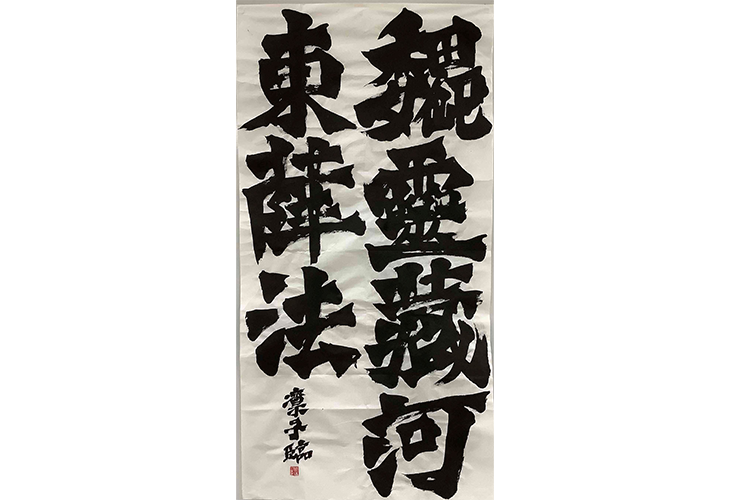 魏靈藏河
東薛法
凜子臨